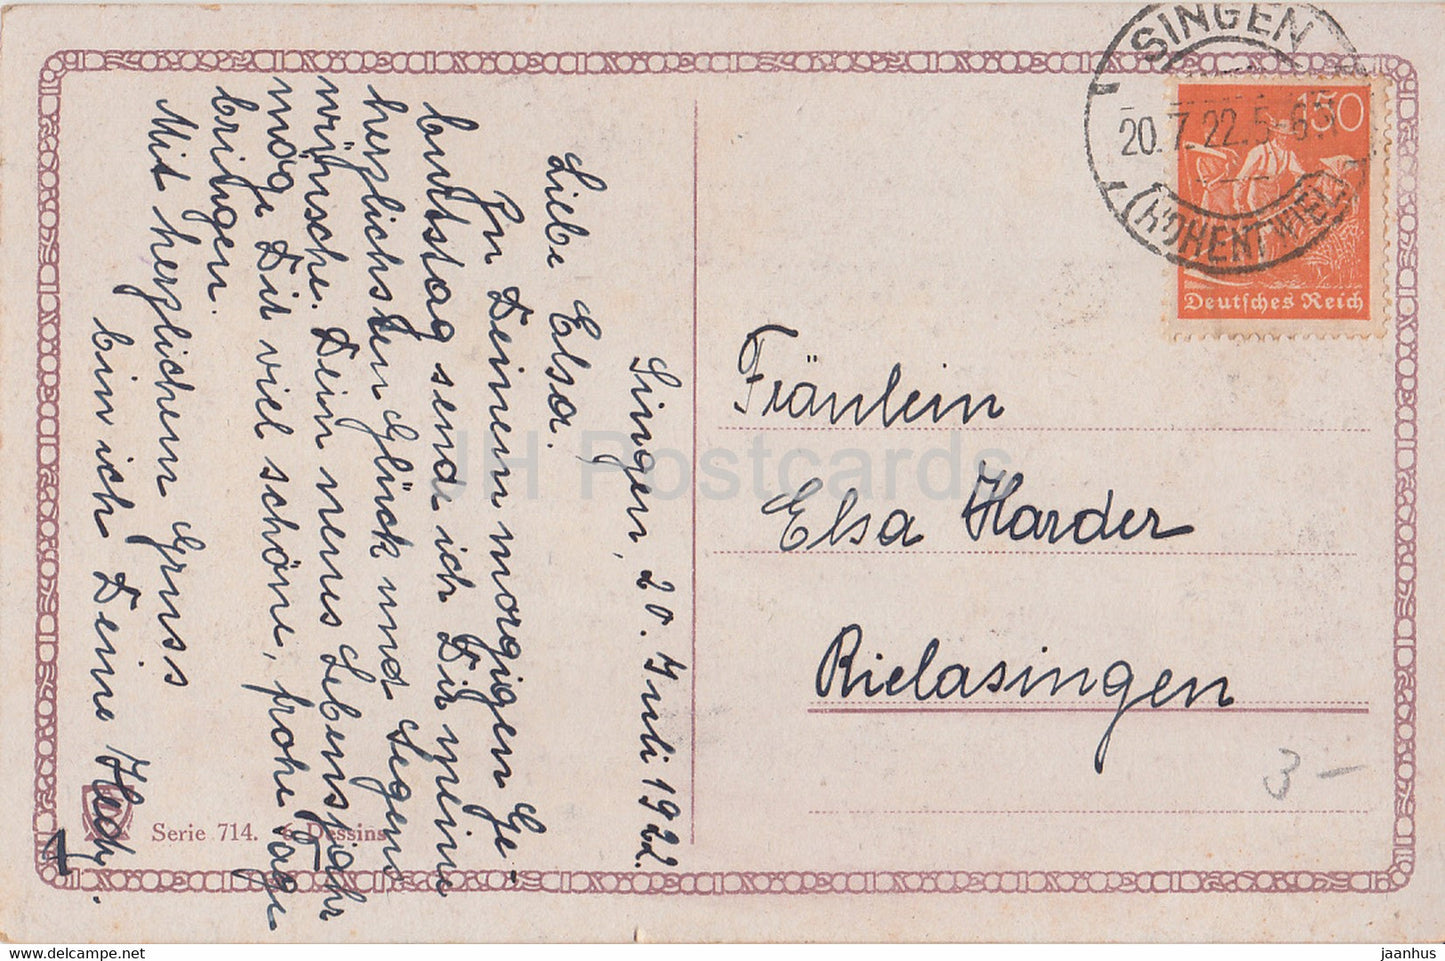 Singen, 20. Juli 1922.
Liebe Elsa.
Zu Deinem morgigen Ge-
burtstag sende ich Dir meine
herzlichsten Glück und Segens
wünsche. Dein neues Lebensjahr
möge Dir viel schöne, frohe Tage
bringen.
Mit herzlichem Gruss
bin ich Deine Hedy.
Serie 714. 6 Dessins
SINGEN
20.7.22.5-6
(HOHENTWIEL)
150
Deutsches Reich
Fräulein
Elsa Harder
Rielasingen
3 –
JH Postcards
jaanhus